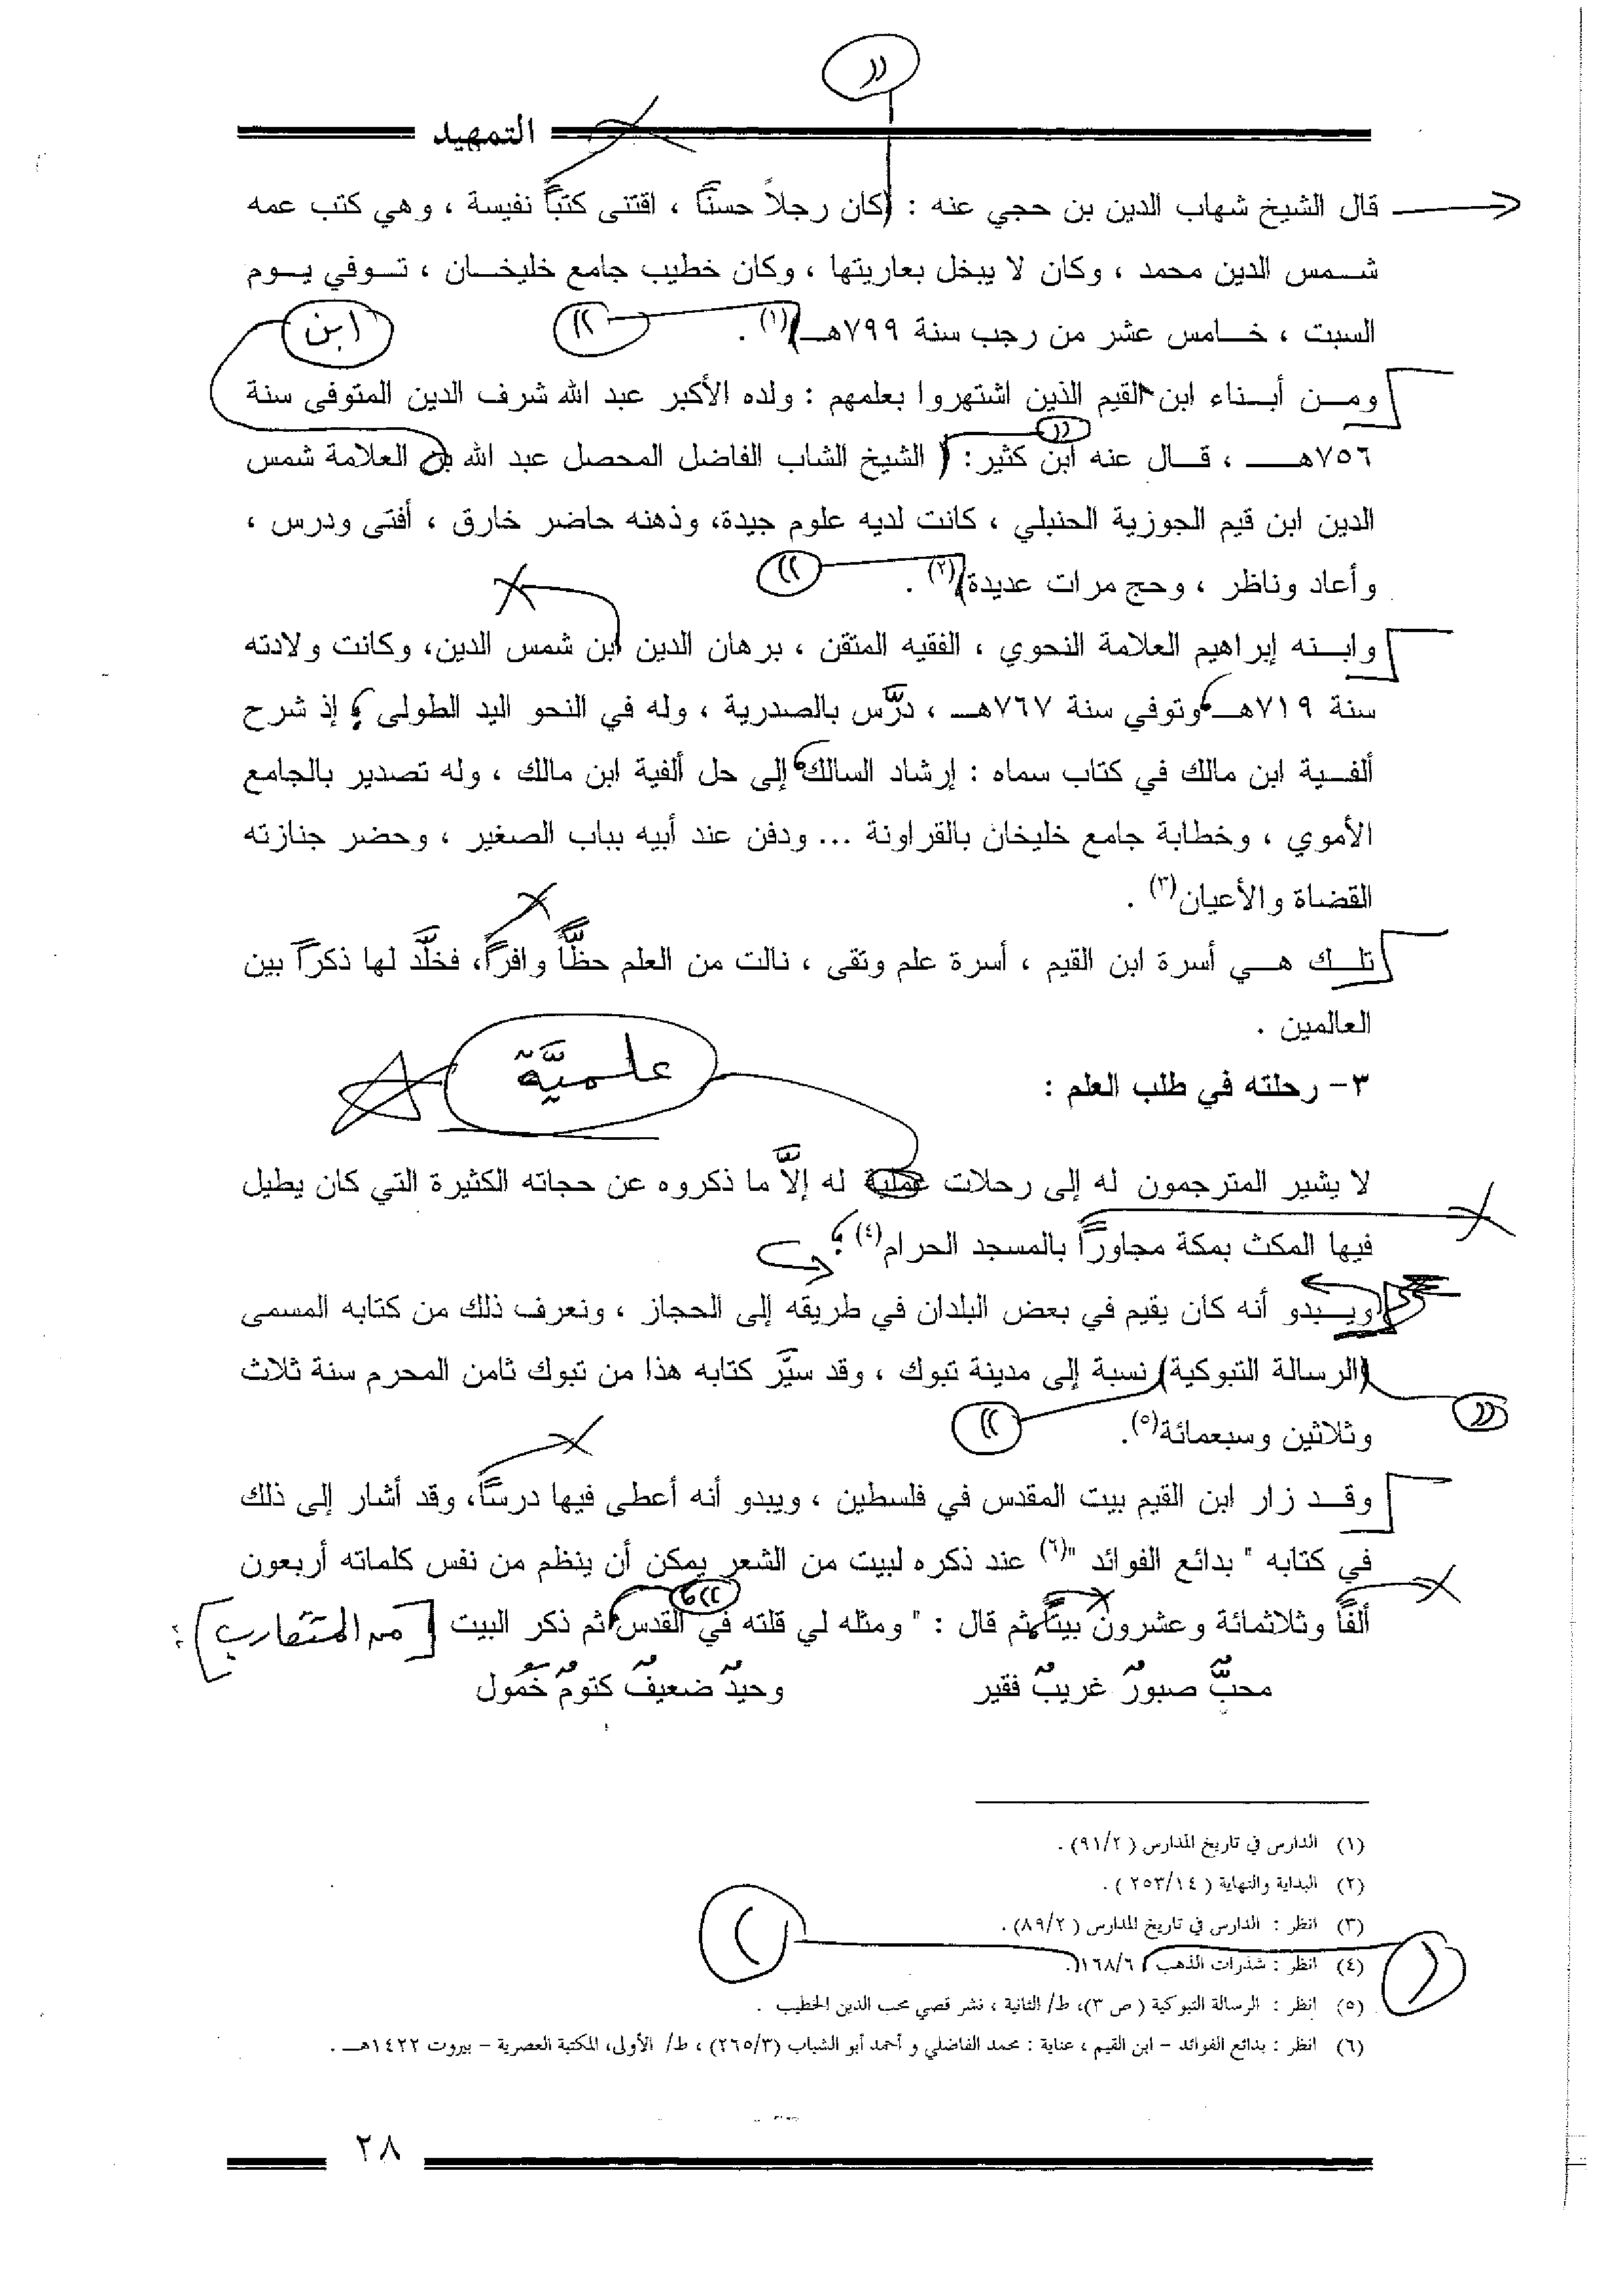 التمهيد
قال الشيخ شهاب الدين بن حجي عنه : (كان رجلاً حسناً ، اقتنى كتباً نفيسة ، وهي كتب عمه
شمس الدين محمد ، وكان لا يبخل بعاريتها ، وكان خطيب جامع خليخان ، توفي يوم
السبت ، خامس عشر من رجب سنة ٧٩٩هـ)(١) .
ابن
ومن أبناء ابن القيم الذين اشتهروا بعلمهم : ولده الأكبر عبد الله شرف الدين المتوفى سنة
٧٥٦هـ ، قال عنه ابن كثير: ( الشيخ الشاب الفاضل المحصل عبد الله بن العلامة شمس
الدين ابن قيم الجوزية الحنبلي ، كانت لديه علوم جيدة، وذهنه حاضر خارق ، أفتى ودرس ،
وأعاد وناظر ، وحج مرات عديدة)(٢) .
وابنه إبراهيم العلامة النحوي ، الفقيه المتقن ، برهان الدين ابن شمس الدين، وكانت ولادته
سنة ٧١٩هـ وتوفي سنة ٧٦٧هـ ، درَّس بالصدرية ، وله في النحو اليد الطولى ، إذ شرح
ألفية ابن مالك في كتاب سماه : إرشاد السالك إلى حل ألفية ابن مالك ، وله تصدير بالجامع
الأموي ، وخطابة جامع خليخان بالقراونة ... ودفن عند أبيه بباب الصغير ، وحضر جنازته
القضاة والأعيان(٣) .
تلك هي أسرة ابن القيم ، أسرة علم وتقى ، نالت من العلم حظّاً وافراً، فخلَّد لها ذكراً بين
العالمين .
علميَّة
٣- رحلته في طلب العلم :
لا يشير المترجمون له إلى رحلات عملية له إلاَّ ما ذكروه عن حجاته الكثيرة التي كان يطيل
فيها المكث بمكة مجاوراً بالمسجد الحرام(٤) .
ويبدو أنه كان يقيم في بعض البلدان في طريقه إلى الحجاز ، ونعرف ذلك من كتابه المسمى
(الرسالة التبوكية) نسبة إلى مدينة تبوك ، وقد سيَّر كتابه هذا من تبوك ثامن المحرم سنة ثلاث
وثلاثين وسبعمائة(٥).
وقد زار ابن القيم بيت المقدس في فلسطين ، ويبدو أنه أعطى فيها درساً، وقد أشار إلى ذلك
في كتابه " بدائع الفوائد "(٦) عند ذكره لبيت من الشعر يمكن أن ينظم من نفس كلماته أربعون
ألفاً وثلاثمائة وعشرون بيتاً ثم قال : " ومثله لي قلته في القدس ثم ذكر البيت [من المتقارب] :
محبٌّ صبورٌ غريبٌ فقير وحيدٌ ضعيفٌ كتومٌ خَمُول
(١) الدارس في تاريخ المدارس ( ٩١/٢) .
(٢) البداية والنهاية ( ٢٥٣/١٤ ) .
(٣) انظر : الدارس في تاريخ المدارس ( ٨٩/٢) .
(٤) انظر : شذرات الذهب ، ١٦٨/٦.
(٥) انظر : الرسالة التبوكية ( ص ٣)، ط/ الثانية ، نشر قصي محب الدين الخطيب .
(٦) انظر : بدائع الفوائد – ابن القيم ، عناية : محمد الفاضلي و أحمد أبو الشباب (٢٦٥/٣) ، ط/ الأولى، المكتبة العصرية – بيروت ١٤٢٢هـ .
٢٨